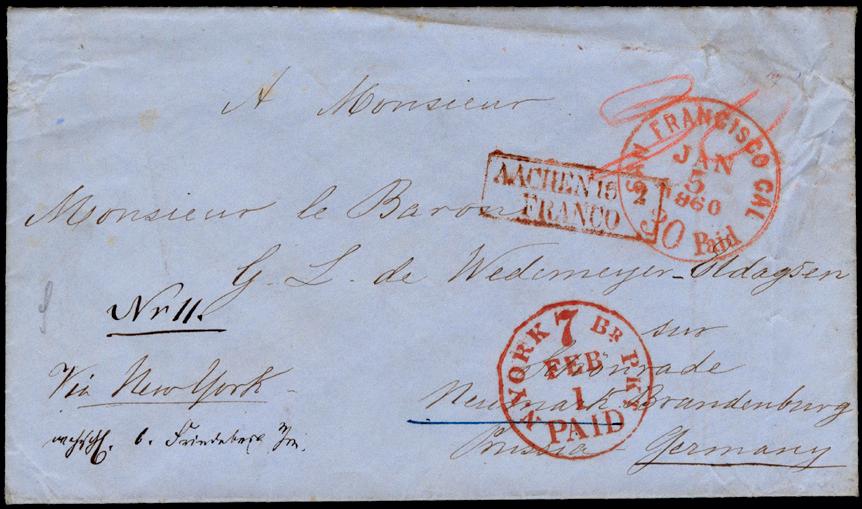 A Monsieur
SAN FRANCISCO CAL
JAN
5
1860
30 Paid
AACHEN 15 2
FRANCO
Monsieur le Baron
G. L. de Wedemeyer-Eldagsen
Nr 11.
sur
N. YORK 7 BR PKT
FEB
1
PAID
Schönrade
Via New York
Neumark Brandenburg
b. Friedeberg
Prussia Germany